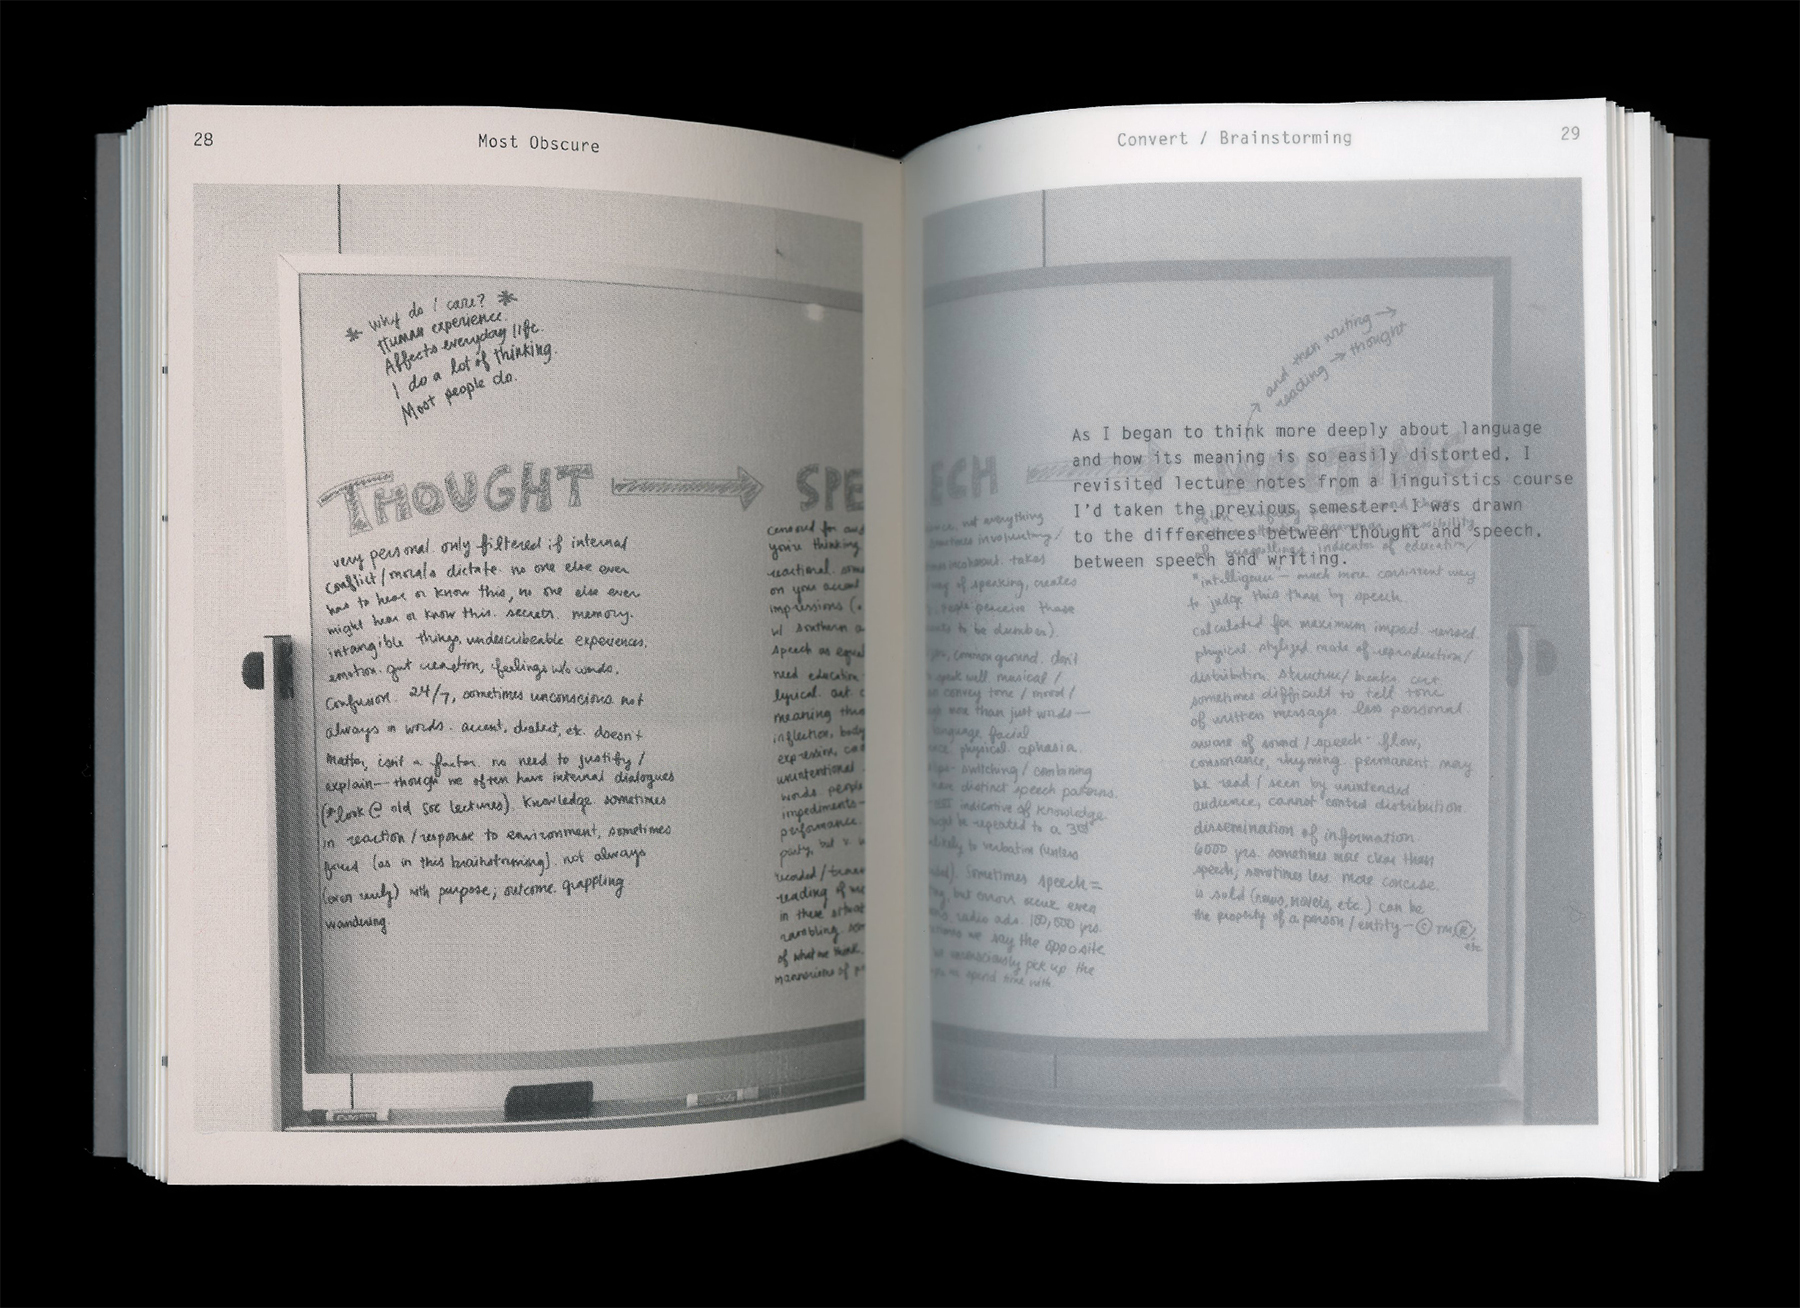 28
Most Obscure
* why do i care? *
Human experience.
Affects everyday life.
I do a lot of thinking.
Most people do.
THOUGHT
SPE
very personal. only filtered if internal
conflict/morals dictate. no one else ever
has to hear or know this, no one else ever
might hear or know this. secrets. memory.
intangible things, undescribeable experiences,
emotion. gut reaction, feelings w/o words.
Confusion. 24/7, sometimes unconscious. not
always in words. accent, dialect, etc. doesn't
matter, isn't a factor. no need to justify/
explain— though we often have internal dialogues
(*look @ old soc lectures). Knowledge. sometimes
in reaction/response to environment, sometimes
forced (as in this brainstorming). not always
(even rarely) with purpose; outcome. grappling
wandering.
censored for
you're thinking
reactional.
on your accent
impressions (
w/ southern a
speech as equal
need education
lyrical. art
meaning
inflection, body
expression,
unintentional
words people
impediments—
performance.
party, but
recorded/
reading of
in these situat
rambling.
of what we think.
mannerisms of
Convert / Brainstorming
29
and then writing →
reading → thought
As I began to think more deeply about language
and how its meaning is so easily distorted, I
revisited lecture notes from a linguistics course
I'd taken the previous semester. I was drawn
to the differences between thought and speech,
between speech and writing.
ECH
not everything
sometimes involuntary/
incoherent. takes
way of speaking, creates
people perceive those
to be dumber).
common ground. don't
speak well musical/
convey tone/mood/
more than just words—
language, facial
physical. aphasia.
switching/combining
have distinct speech patterns.
indicative of knowledge.
be repeated to a 3rd
likely to verbatim (unless
Sometimes speech =
but errors occur even
radio ads. 100,000 yrs.
we say the opposite
unconsciously pick up the
spend time with.
of misspellings. indicator of education/
"intelligence"— much more consistent way
to judge this than by speech.
calculated for maximum impact. revised.
physical, stylized mode of reproduction/
distribution. structure/breaks.
sometimes difficult to tell tone
of written messages. less personal.
aware of sound/speech- flow,
consonance, rhyming. permanent. may
be read/seen by unintended
audience, cannot control distribution.
dissemination of information
6000 yrs. sometimes more clear than
speech, sometimes less. more concise.
is sold (news, novels, etc.) can be
the property of a person/entity— © TM, ®,
etc